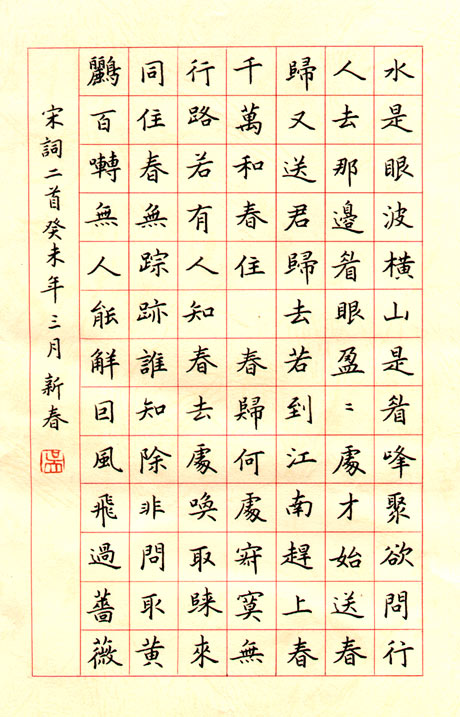 水是眼波橫山是眉峰聚欲問行
人去那邊眉眼盈〻處才始送春
歸又送君歸去若到江南趕上春
千萬和春住 春歸何處寂寞無
行路若有人知春去處喚取歸來
同住春無踪跡誰知除非問取黃
鸝百囀無人能解囙風飛過薔薇
宋詞二首癸未年三月新春